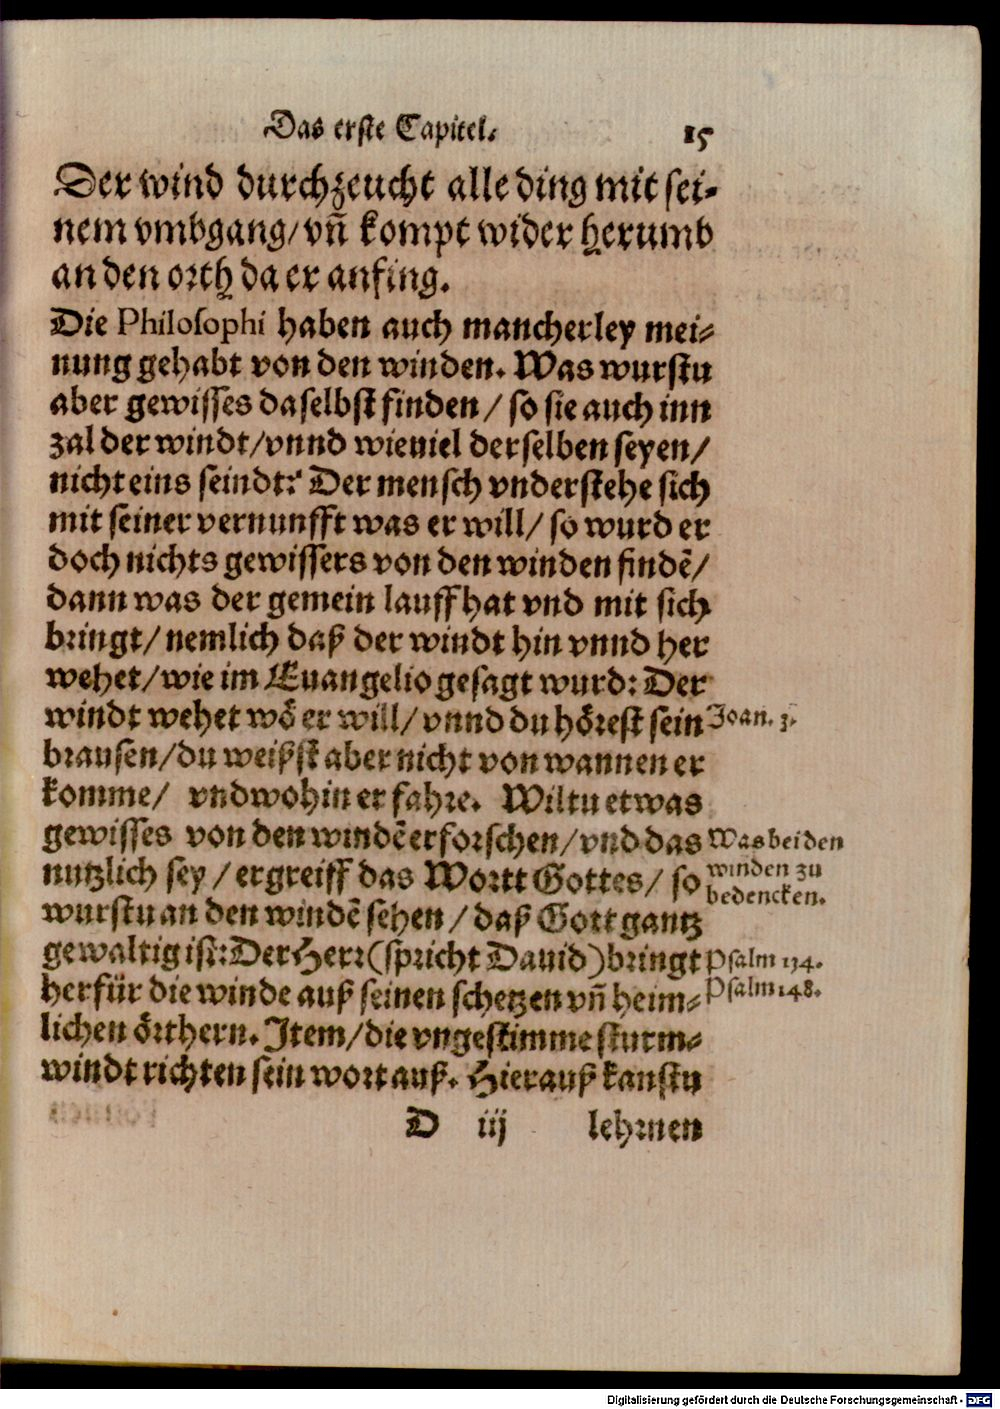 Das erste Capitel. 15
Der wind durchzeucht alle ding mit sei-
nem vmbgang/ vñ kompt wider herumb
an den orth da er anfing.
Die Philosophi haben auch mancherley mei-
nung gehabt von den winden. Was wurstu
aber gewisses daselbst finden / so sie auch inn
zal der windt/ vnnd wieuiel derselben seyen/
nicht eins seindt? Der mensch vnderstehe sich
mit seiner vernunfft was er will/ so wurd er
doch nichts gewissers von den winden findẽ/
dann was der gemein lauff hat vnd mit sich
bringt/ nemlich daß der windt hin vnnd her
wehet/ wie im Euangelio gesagt wurd: Der
windt wehet wo er will/ vnnd du hörest sein
Joan. 3.
brausen/ du weißst aber nicht von wannen er
komme/ vnd wohin er fahre. Wiltu etwas
gewisses von den windẽ erforschen/ vnd das
Was bei den
winden zu
bedencken.
nutzlich sey / ergreiff das Wortt Gottes/ so
wurstu an den windẽ sehen / daß Gott gantz
gewaltig ist: Der Herr (spricht Dauid) bringt
Psalm 134.
herfür die winde auß seinen schetzen vñ heim-
Psalm 148.
lichen örthern. Item/ die vngestimme sturm-
windt richten sein wort auß. Hierauß kanstu
D iij lehrnen
Digitalisierung gefördert durch die Deutsche Forschungsgemeinschaft - DFG